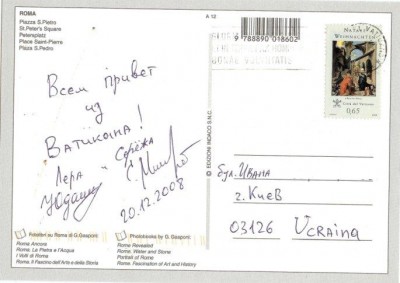 ROMA
Piazza S.Pietro
St.Peter's Square
Petersplatz
Place Saint-Pierre
Plaza S.Pedro
A 12
9 788890 018602
NATALE
WEIHNACHTEN
Città del Vaticano
0,65
Всем привет
из
Ватикана!
Лера и Серёжа
20.12.2008
© EDIZIONI INDACO S.N.C.
бул. Ивана
г. Киев
03126 Ucraina
Fotolibri su Roma di G.Gasponi:
Roma Ancora
Roma. La Pietra e l'Acqua
I Volti di Roma
Roma. Il Fascino dell'Arte e della Storia
Photobooks by G. Gasponi:
Rome Revealed
Rome. Water and Stone
Portrait of Rome
Rome. Fascination of Art and History